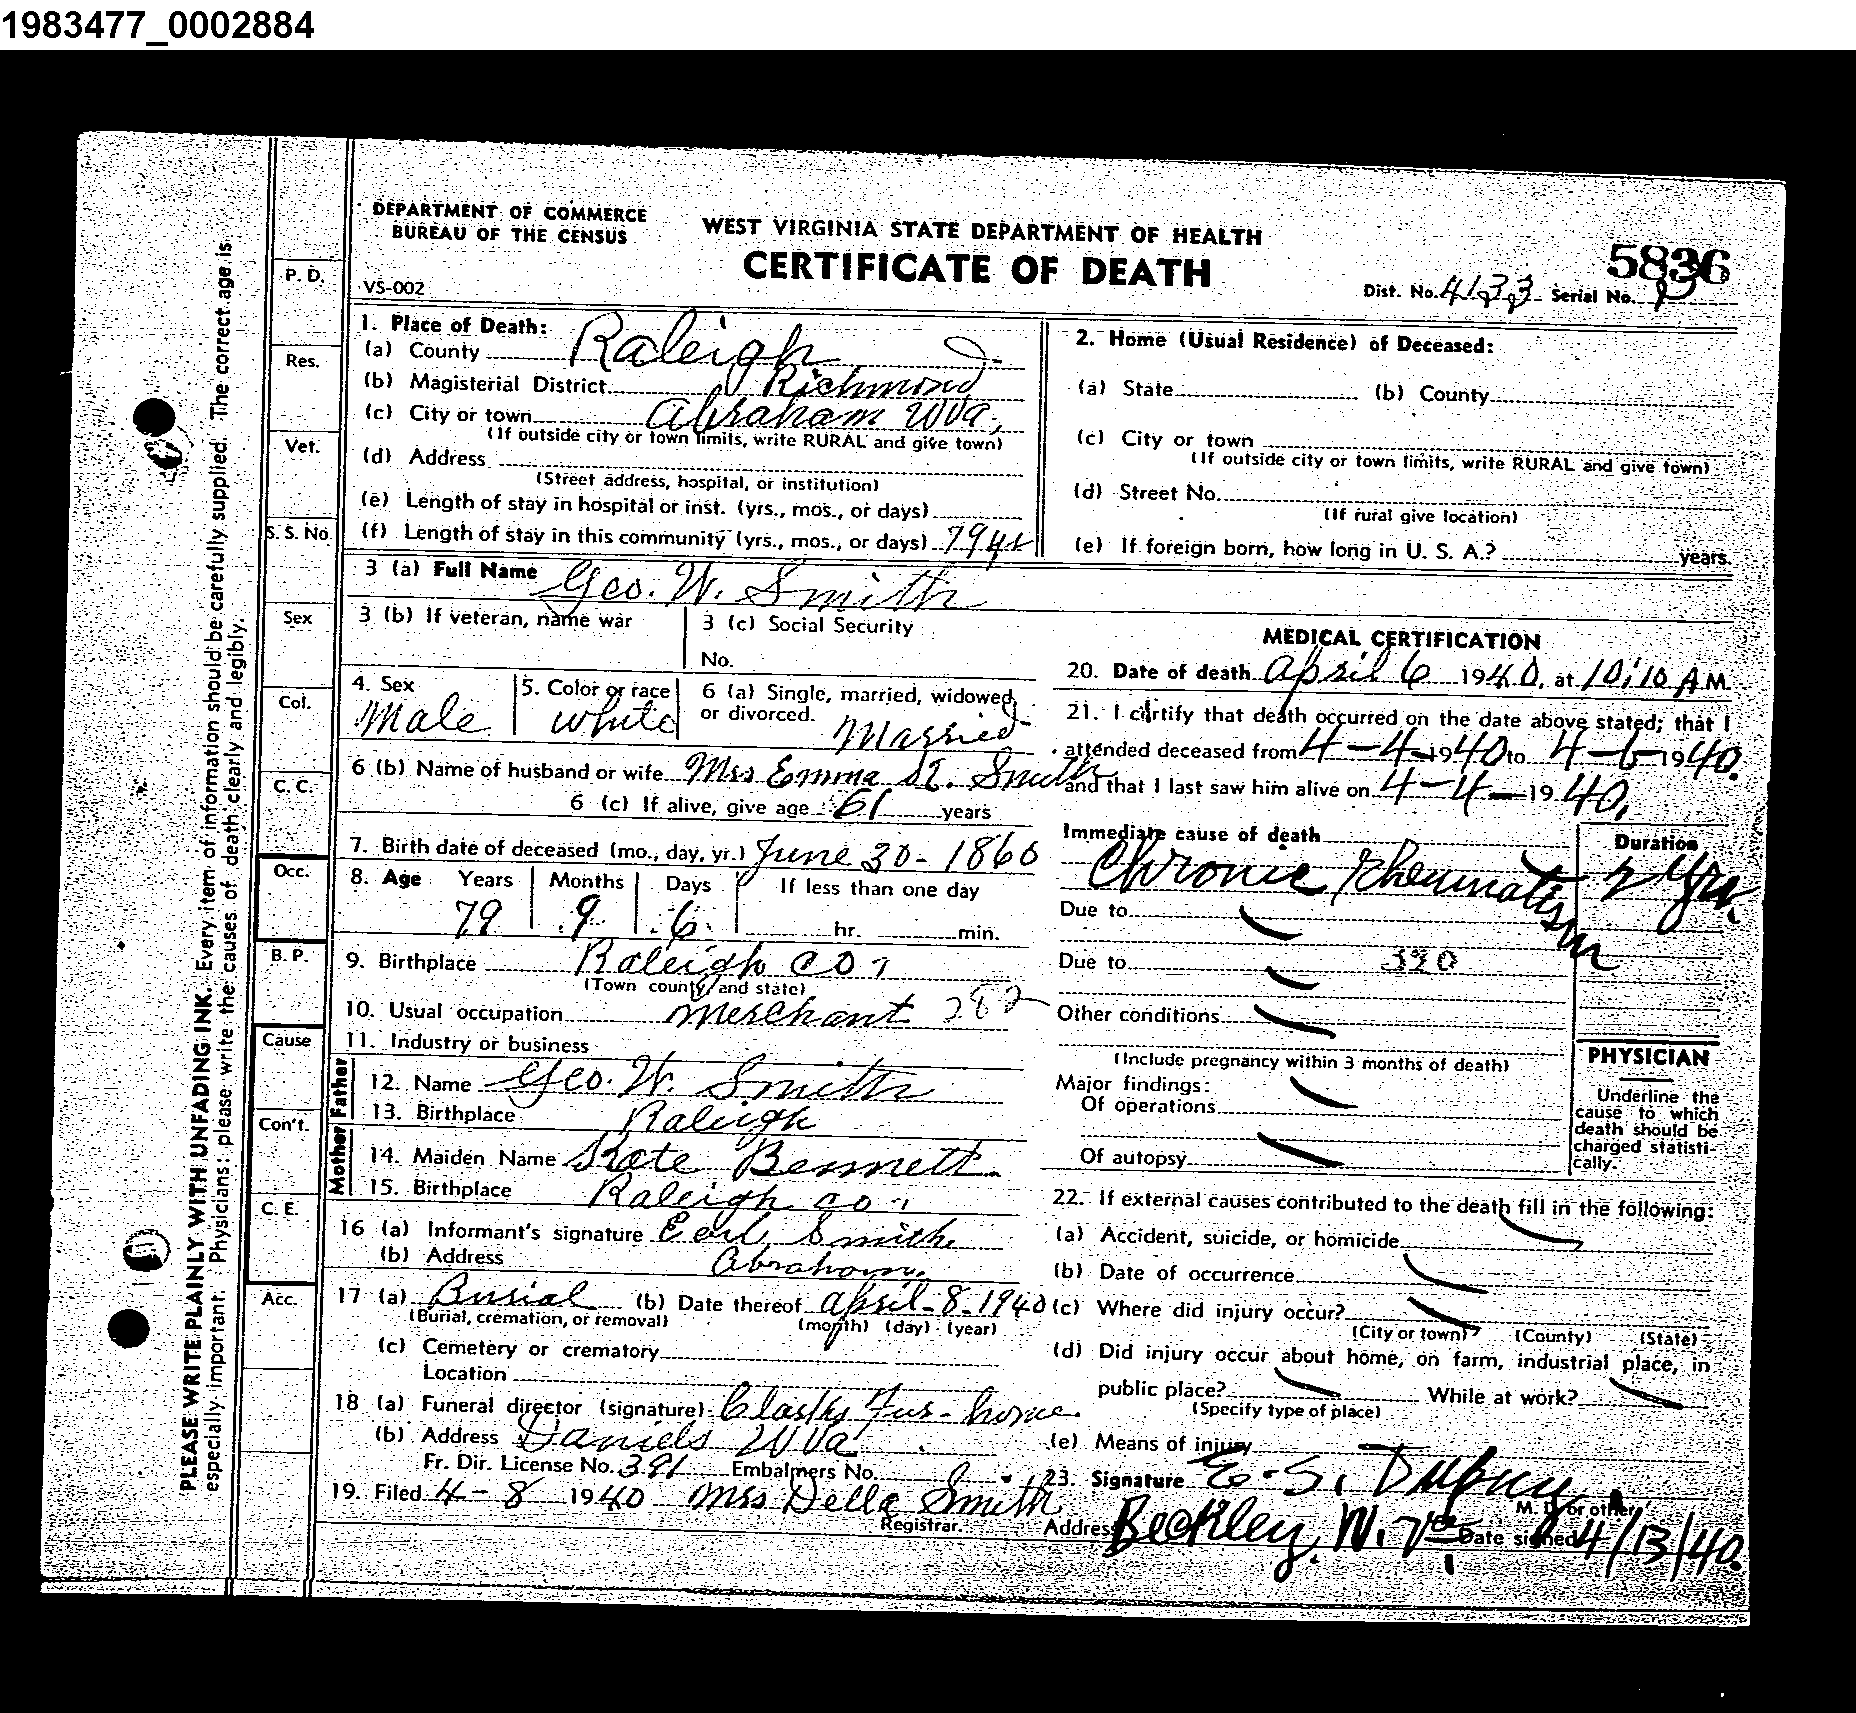 1983477_0002884
PLEASE WRITE PLAINLY WITH UNFADING INK. Every item of information should be carefully supplied. The correct age is
especially important. Physicians: please write the causes of death clearly and legibly.
P. D.
Res.
Vet.
S. S. No.
Sex
Col.
C. C.
Occ.
B. P.
Cause
Con't.
C. E.
Acc.
DEPARTMENT OF COMMERCE
BUREAU OF THE CENSUS
WEST VIRGINIA STATE DEPARTMENT OF HEALTH
CERTIFICATE OF DEATH
5836
VS-002
Dist. No. 4133 Serial No.
1. Place of Death:
(a) County Raleigh
(b) Magisterial District Richmond
(c) City or town Abraham WVa.
(If outside city or town limits, write RURAL and give town)
(d) Address
(Street address, hospital, or institution)
(e) Length of stay in hospital or inst. (yrs., mos., or days)
(f) Length of stay in this community (yrs., mos., or days) 79 yr
2. Home (Usual Residence) of Deceased:
(a) State (b) County
(c) City or town
(If outside city or town limits, write RURAL and give town)
(d) Street No.
(If rural give location)
(e) If foreign born, how long in U. S. A.? years
3 (a) Full Name Geo. W. Smith
3 (b) If veteran, name war
3 (c) Social Security
No.
4. Sex Male
5. Color or race white
6 (a) Single, married, widowed,
or divorced. Married
6 (b) Name of husband or wife Mrs Emma Smith
6 (c) If alive, give age 61 years
7. Birth date of deceased (mo., day, yr.) June 30-1860
8. Age Years Months Days If less than one day
79 9 6 hr. min.
9. Birthplace Raleigh Co.
(Town county and state)
10. Usual occupation Merchant 282
11. Industry or business
Father
12. Name Geo. W. Smith
13. Birthplace Raleigh
Mother
14. Maiden Name Kate Bennett
15. Birthplace Raleigh Co.
16 (a) Informant's signature Earl Smith
(b) Address Abraham.
17 (a) Burial (b) Date thereof April-8-1940
(Burial, cremation, or removal) (month) (day) (year)
(c) Cemetery or crematory
Location
18 (a) Funeral director (signature) Clarks Fur-home.
(b) Address Daniels WVa
Fr. Dir. License No. 391 Embalmers No.
19. Filed 4-8 1940 Mrs Della Smith
Registrar.
MEDICAL CERTIFICATION
20. Date of death April 6 1940, at 10:10 A M.
21. I certify that death occurred on the date above stated; that I
attended deceased from 4-4-1940 to 4-6-1940.
and that I last saw him alive on 4-4-1940.
Immediate cause of death Duration
Chronic Rheumatism 2 Yrs.
Due to
Due to 390
Other conditions
(Include pregnancy within 3 months of death)
Major findings:
Of operations
Of autopsy
PHYSICIAN
Underline the
cause to which
death should be
charged statisti-
cally.
22. If external causes contributed to the death fill in the following:
(a) Accident, suicide, or homicide
(b) Date of occurrence
(c) Where did injury occur?
(City or town) (County) (State)
(d) Did injury occur about home, on farm, industrial place, in
public place? While at work?
(Specify type of place)
(e) Means of injury
23. Signature E. S. Dupuy
M. D. or other
Address Beckley, W. Va. Date signed 4/13/40.